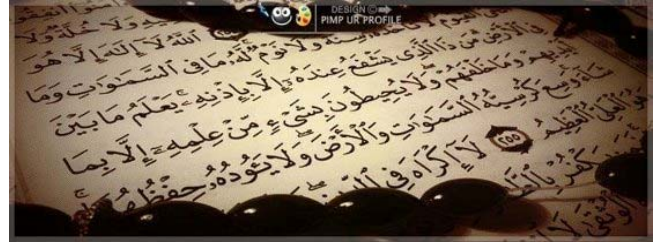 DESIGN ©
PIMP UR PROFILE
خُلَّةٌ وَلَا
ٱللَّهُ لَآ إِلَٰهَ إِلَّا هُوَ
وَلَا نَوْمٌ لَّهُۥ مَا فِى ٱلسَّمَٰوَٰتِ وَمَا
فِى ٱلْأَرْضِ مَن ذَا ٱلَّذِى يَشْفَعُ عِندَهُۥٓ إِلَّا بِإِذْنِهِۦ يَعْلَمُ مَا بَيْنَ
أَيْدِيهِمْ وَمَا خَلْفَهُمْ وَلَا يُحِيطُونَ بِشَىْءٍ مِّنْ عِلْمِهِۦٓ إِلَّا بِمَا
شَآءَ وَسِعَ كُرْسِيُّهُ ٱلسَّمَٰوَٰتِ وَٱلْأَرْضَ وَلَا يَـُٔودُهُۥ حِفْظُهُمَا
وَهُوَ ٱلْعَلِىُّ ٱلْعَظِيمُ ٢٥٥ لَآ إِكْرَاهَ فِى ٱلدِّينِ
يَكْفُرْ
ٱلْوُثْقَىٰ لَا